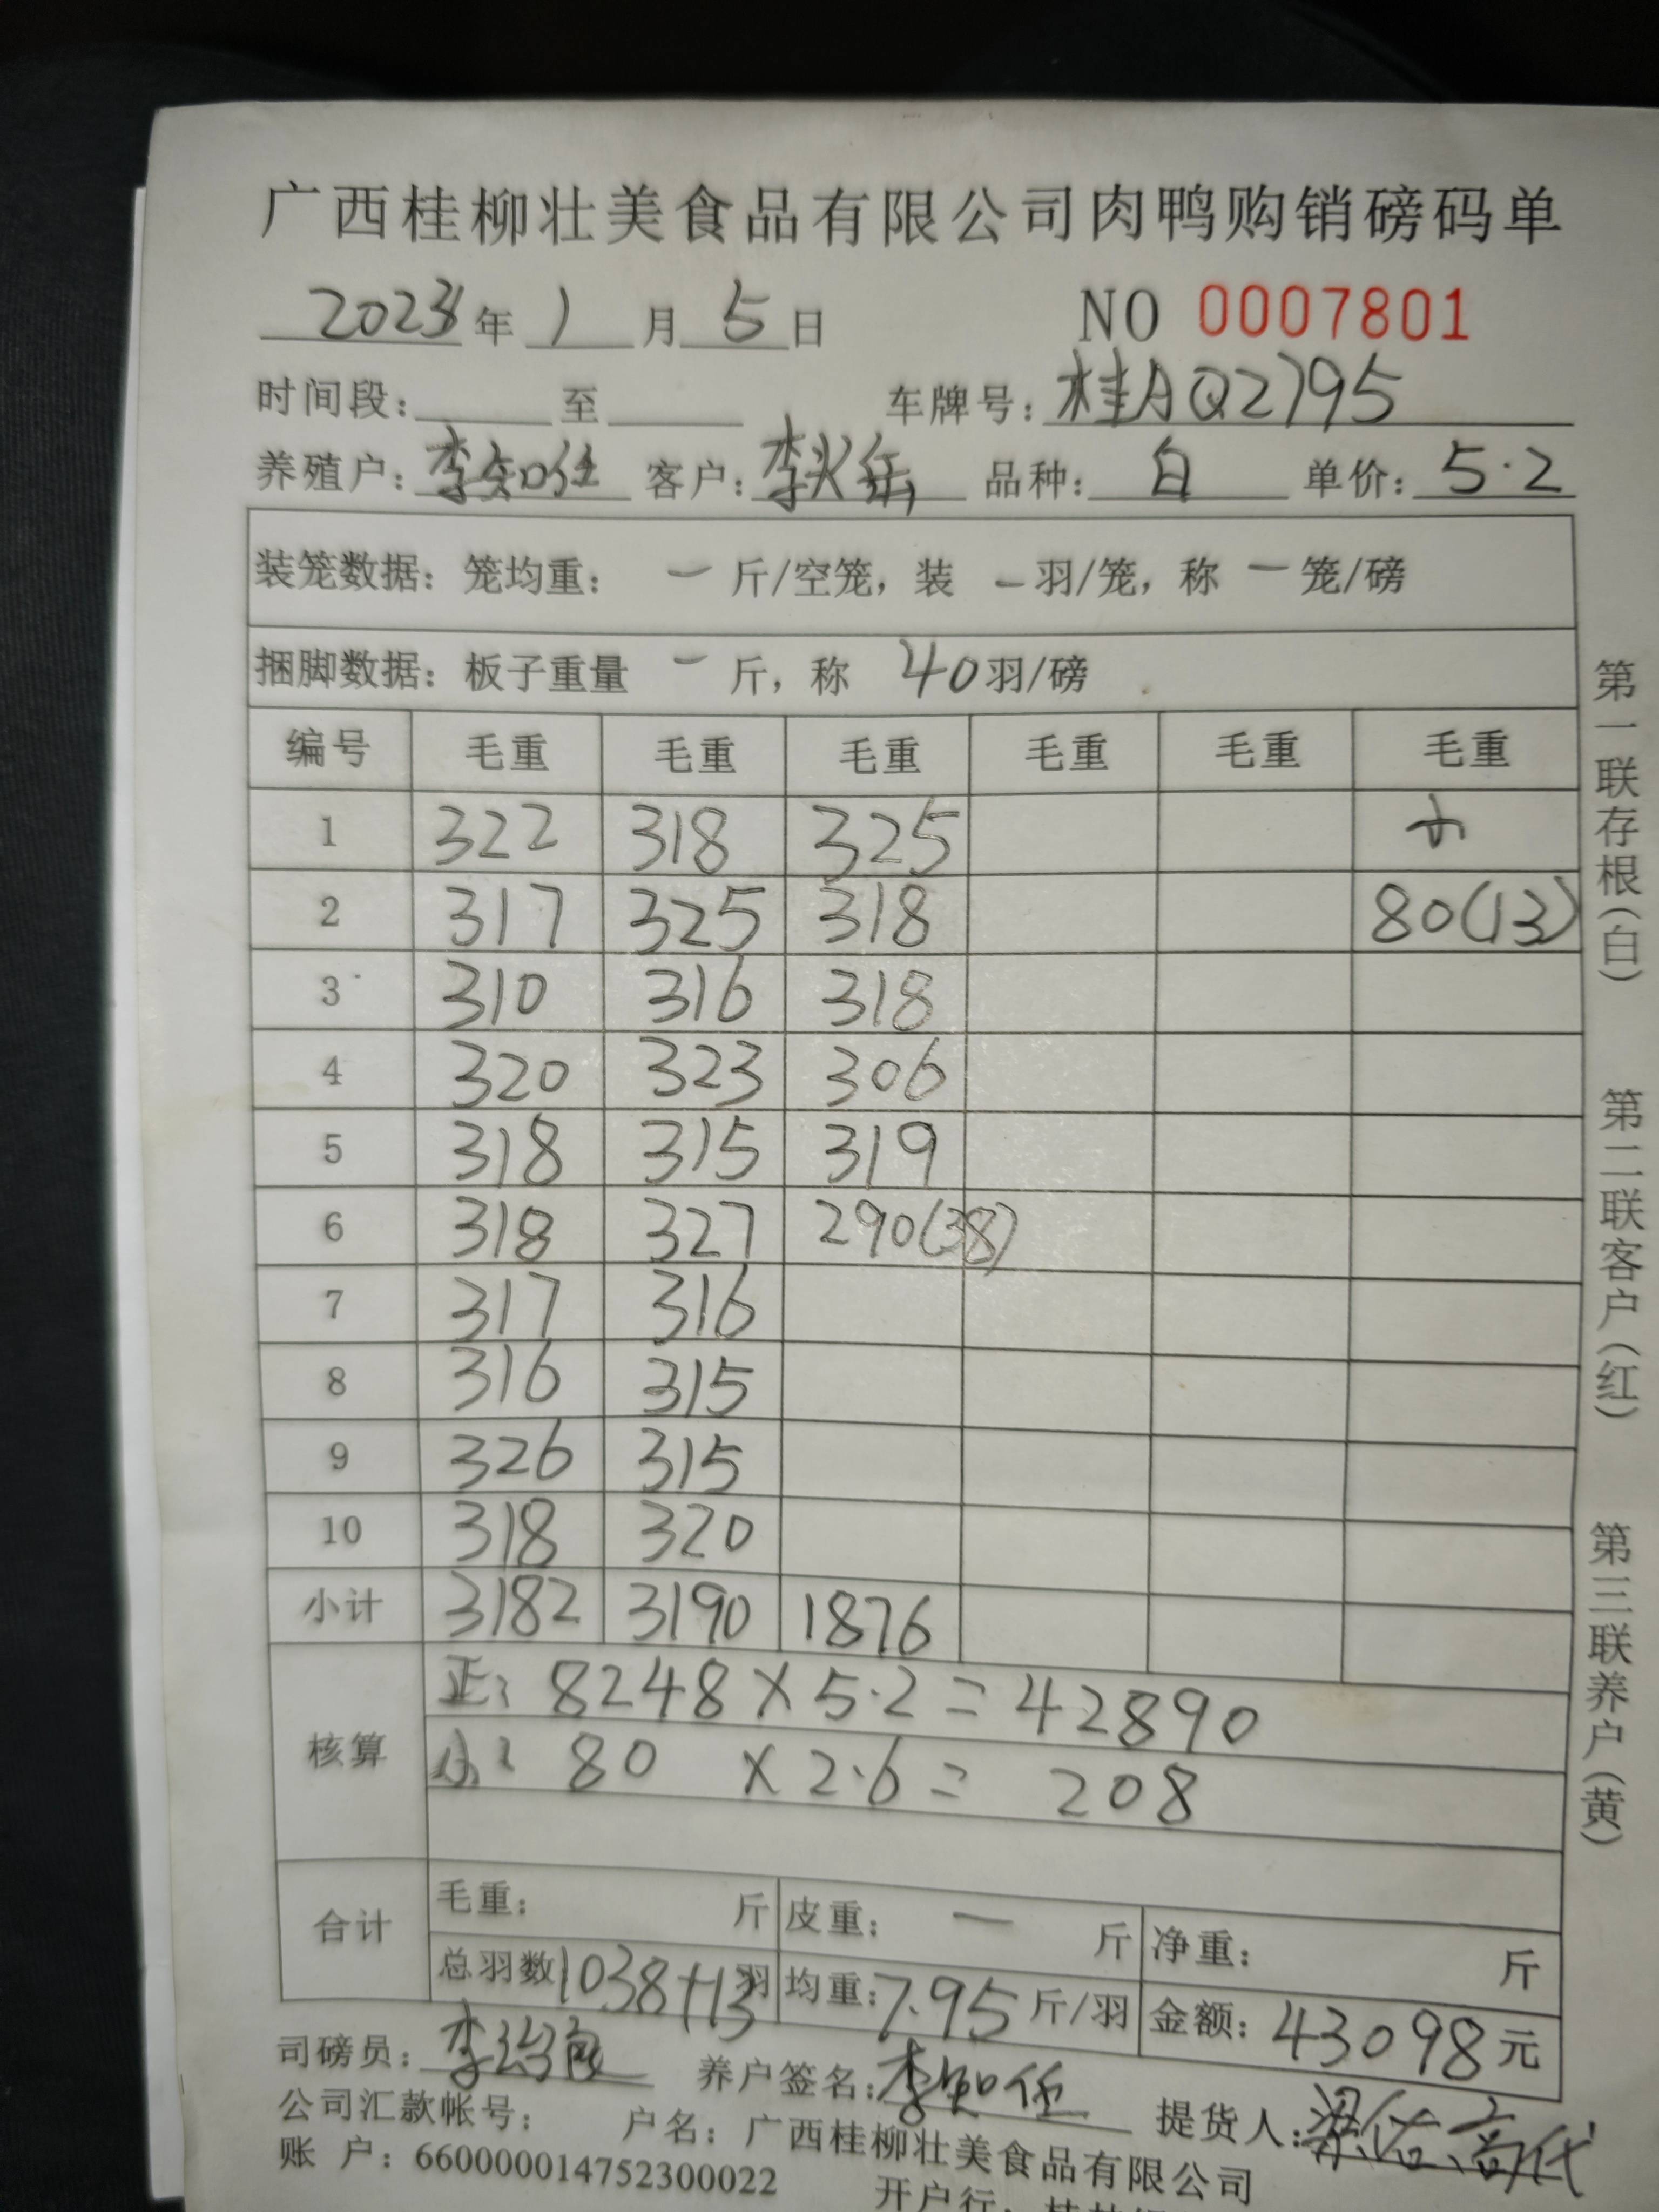 广西桂柳壮美食品有限公司肉鸭购销磅码单
2023年1月5日 NO 0007801
时间段: 至 车牌号: 桂AQ2795
养殖户: 李知任 客户: 李 品种: 白 单价: 5.2
装笼数据: 笼均重: — 斤/空笼, 装 — 羽/笼, 称 — 笼/磅
捆脚数据: 板子重量 — 斤, 称 40羽/磅
编号 毛重 毛重 毛重 毛重 毛重 毛重
1 322 318 325 小
2 317 325 318 80(13)
3 310 316 318
4 320 323 306
5 318 315 319
6 318 327 290(38)
7 317 316
8 316 315
9 326 315
10 318 320
小计 3182 3190 1876
核算 正: 8248×5.2=42890
小: 80 ×2.6= 208
合计 毛重: 斤 皮重: — 斤 净重: 斤
总羽数1038+13羽 均重: 7.95斤/羽 金额: 43098元
司磅员: 李 养户签名: 李知任 提货人:
公司汇款帐号: 户名: 广西桂柳壮美食品有限公司
账 户: 660000014752300022 开户行:
第一联存根(白) 第二联客户(红) 第三联养户(黄)